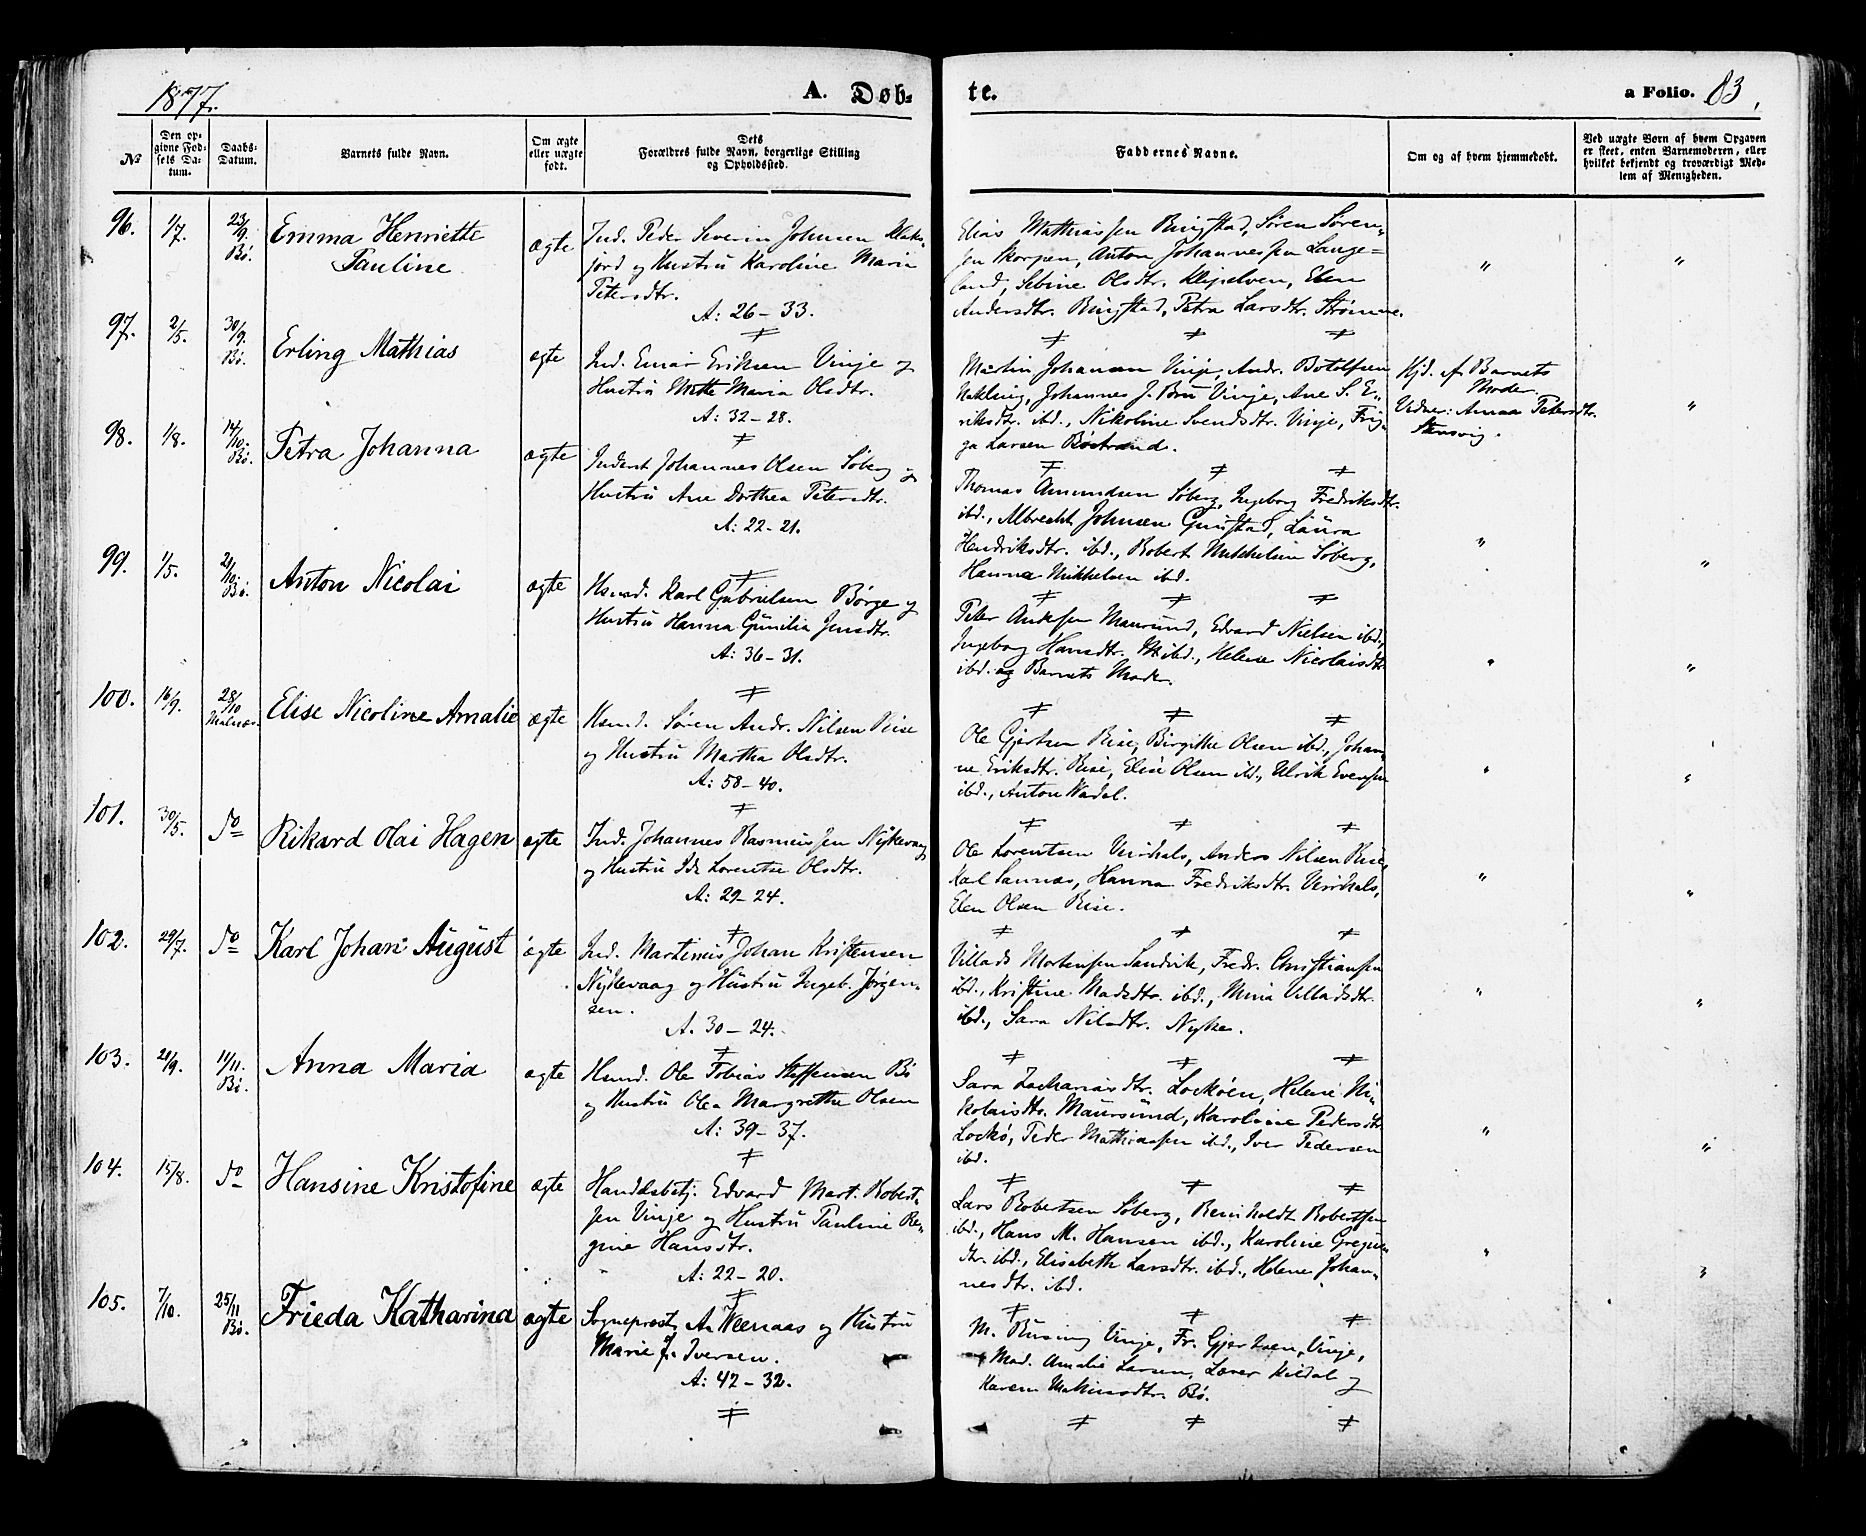 1877.
A. Døb-
te.
a Folio. 83.
№
Den op-
givne Fød-
sels Da-
tum.
Daabs-
Datum.
Barnets fulde Navn.
Om ægte
eller uægte
født.
Dets
Forældres fulde Navn, borgerlige Stilling
og Opholdssted.
Faddernes Navne.
Om og af hvem hjemmedøbt.
Ved uægte Børn af hvem Opgaven
er skeet, enten Barnemoderen, eller
hvilket bekjendt og troværdigt Med-
lem af Menigheden.
96. 1/7. 23/9. Bø. Emma Henriette
Pauline
ægte
Ind. Peder Severin Johnsen Klaks-
jord og Hustru Karoline Maria
Petersdtr.
A: 26 - 33.
Elias Mathiassen Ringstad, Søren Søren-
sen Skorpen, Anton Johannessen Lange-
land, Sebine Olsdtr. Elen
Andersdtr. Ringstad, Petra Larsdtr. Strømme.
" "
97. 2/5. 30/9. Bø. Erling Mathias
ægte
Ind. Einar Eriksen Vinje og
Hustru Mette Maria Olsdtr.
A: 32 - 28.
Martin Johansen Vinje, Andr. Botolfsen
Johannes J. Vinje, Ane S. E-
riksdtr. ibd., Nikoline Svendsdtr. Vinje, Frig-
ga Larsen Bøstrand.
Hjd. af Barnets
Moder.
Vidner: Anna Petersdtr.
Steinsvig.
"
98. 1/8. 14/10. Bø. Petra Johanna
ægte
Inderst Johannes Olsen Søberg og
Hustru Ane Dorthea Petersdtr.
A: 22 - 21.
Thomas Amundsen Søberg, Ingeborg Fredriksdtr.
ibd., Albrecht Johnsen Guustad, Laura
Hendriksdtr. ibd., Robert Mikkelsen Søberg,
Hanna Mikkelsen ibd.
" "
99. 1/5. 21/10. Bø. Anton Nicolai
ægte
Hsmd. Karl Gabrielsen Børge og
Hustru Hanna Gunilia Jensdtr.
A: 36 - 31.
Peter Andersen Maursund, Edvard Nielsen ibd.,
Ingeborg Hansdtr. ibd., Helene Nicolaisdtr.
ibd. og Barnets Moder.
" "
100. 16/9. 28/10 Malnæs. Elise Nicoline Amalie
ægte
Hsmd. Søren Andr. Nilsen Rise
og Hustru Martha Olsdtr.
A: 58 - 40.
Ole Gjertsen Rise, Birgitte Olsen ibd., Johan-
ne Eriksdtr. Rise, Elise Olsen ibd., Ulrik Evensen
ibd., Anton Vadal.
" "
101. 30/5. Do Rikard Olai Hagen
ægte
Ind. Johannes Rasmussen Nykevaag
og Hustru Ida Lorentse Olsdtr.
A: 29 - 24.
Ole Lorentsen Anders Nilsen Rise,
Karl Sannæs, Hanna Fredriksdtr.
Elen Olsen Rise.
" "
102. 29/7. Do Karl Johan August
ægte
Ind. Martinus Johan Kristensen
Nykevaag og Hustru Ingeb. Jørgen-
sen.
A. 30 - 24.
Villads Mortensen Sandvik, Fredr. Christiansen
ibd., Kristine Madsdtr. ibd., Mina Villadsdtr.
ibd., Sara Nilsdtr. Nyke.
" "
103. 21/9. 11/11. Bø. Anna Maria
ægte
Hsmd. Ole Tobias Steffensen Bø
og Hustru Olea Margrethe Olsen
A: 39 - 37.
Sara Zachariasdtr. Lockøen, Helene Ni-
kolaisdtr. Maursund, Karoline Pedersdtr.
Lockø, Peder Mathiassen ibd., Iver Pedersen
ibd.
" "
104. 15/8. Do Hansine Kristofine
ægte
Handelsbetj. Edvard Mart. Robert-
sen Vinje og Hustru Pauline Re-
gine Hansdtr.
A: 22 - 20.
Lars Robertsen Søberg, Reinholdt Robertsen
ibd., Hans M. Hansen ibd., Karoline Gregus-
dtr. ibd., Elisabeth Larsdtr. ibd., Helene Johan-
nesdtr. ibd.
" "
105. 7/10. 25/11 Bø. Frieda Katharina
ægte
Sognepræst A. Weenaas og Hustru
Marie J. Iversen.
A: 42 - 32.
M. Rusing Vinje, Fr. Gjertsen, Vinje,
Mad. Amalie Larsen, Lærer Kildal og
Karen Mathiasdtr. Bø.